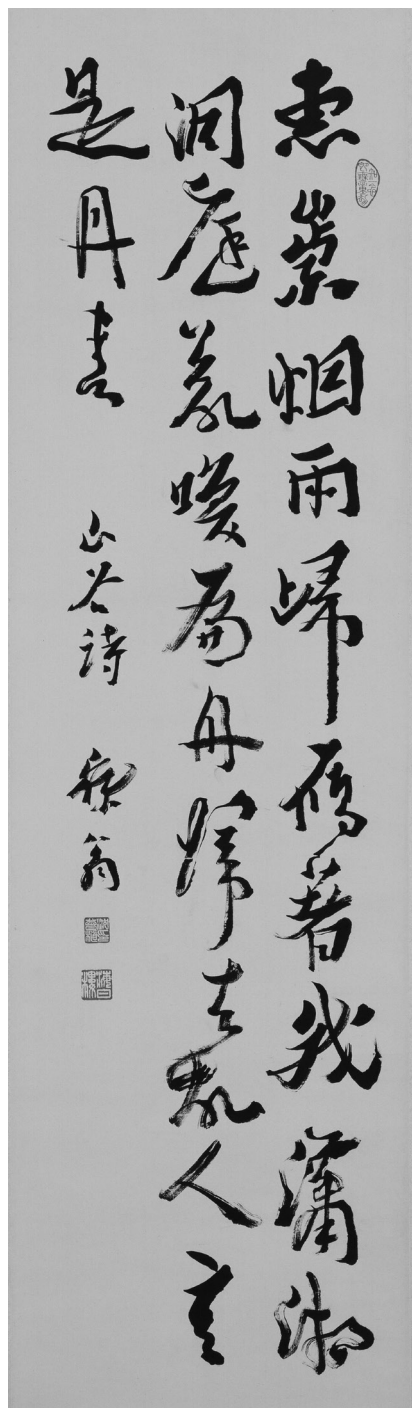 惠崇烟雨歸雁著我瀟湘
洞庭欲喚扁舟歸去故人言
是丹青
山谷詩
翁